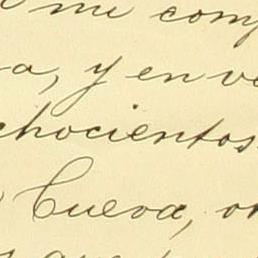 me com
a, y en ve
chocientos
Cueva, o